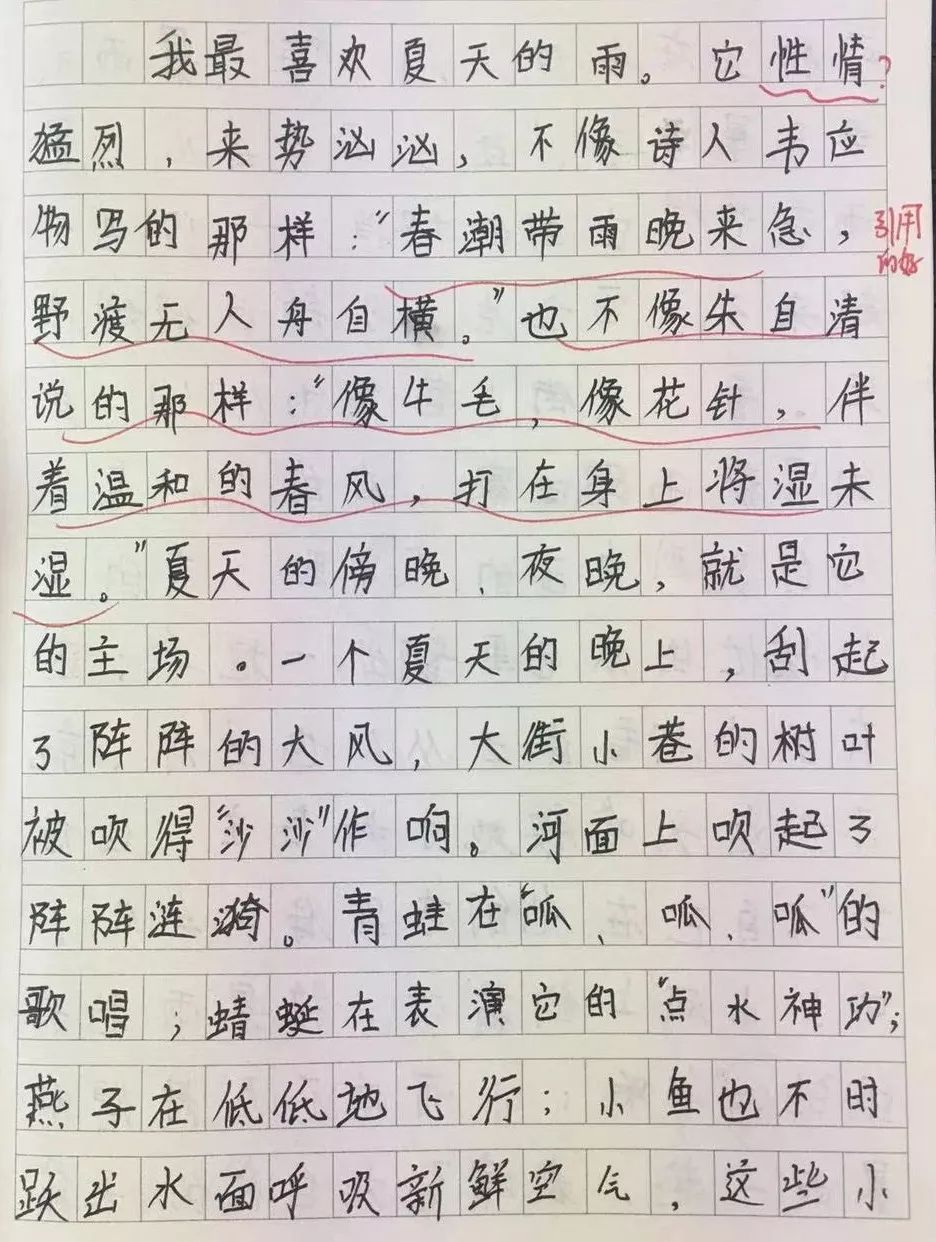 我最喜欢夏天的雨。它性情?
猛烈，来势汹汹，不像诗人韦应
物写的那样：“春潮带雨晚来急，
引用
的好
野渡无人舟自横。”也不像朱自清
说的那样：“像牛毛，像花针，伴
着温和的春风，打在身上将湿未
湿。”夏天的傍晚、夜晚，就是它
的主场。一个夏天的晚上，刮起
了阵阵的大风，大街小巷的树叶
被吹得“沙沙”作响。河面上吹起了
阵阵涟漪。青蛙在“呱、呱、呱”的
歌唱；蜻蜓在表演它的“点水神功”；
燕子在低低地飞行；小鱼也不时
跃出水面呼吸新鲜空气，这些小